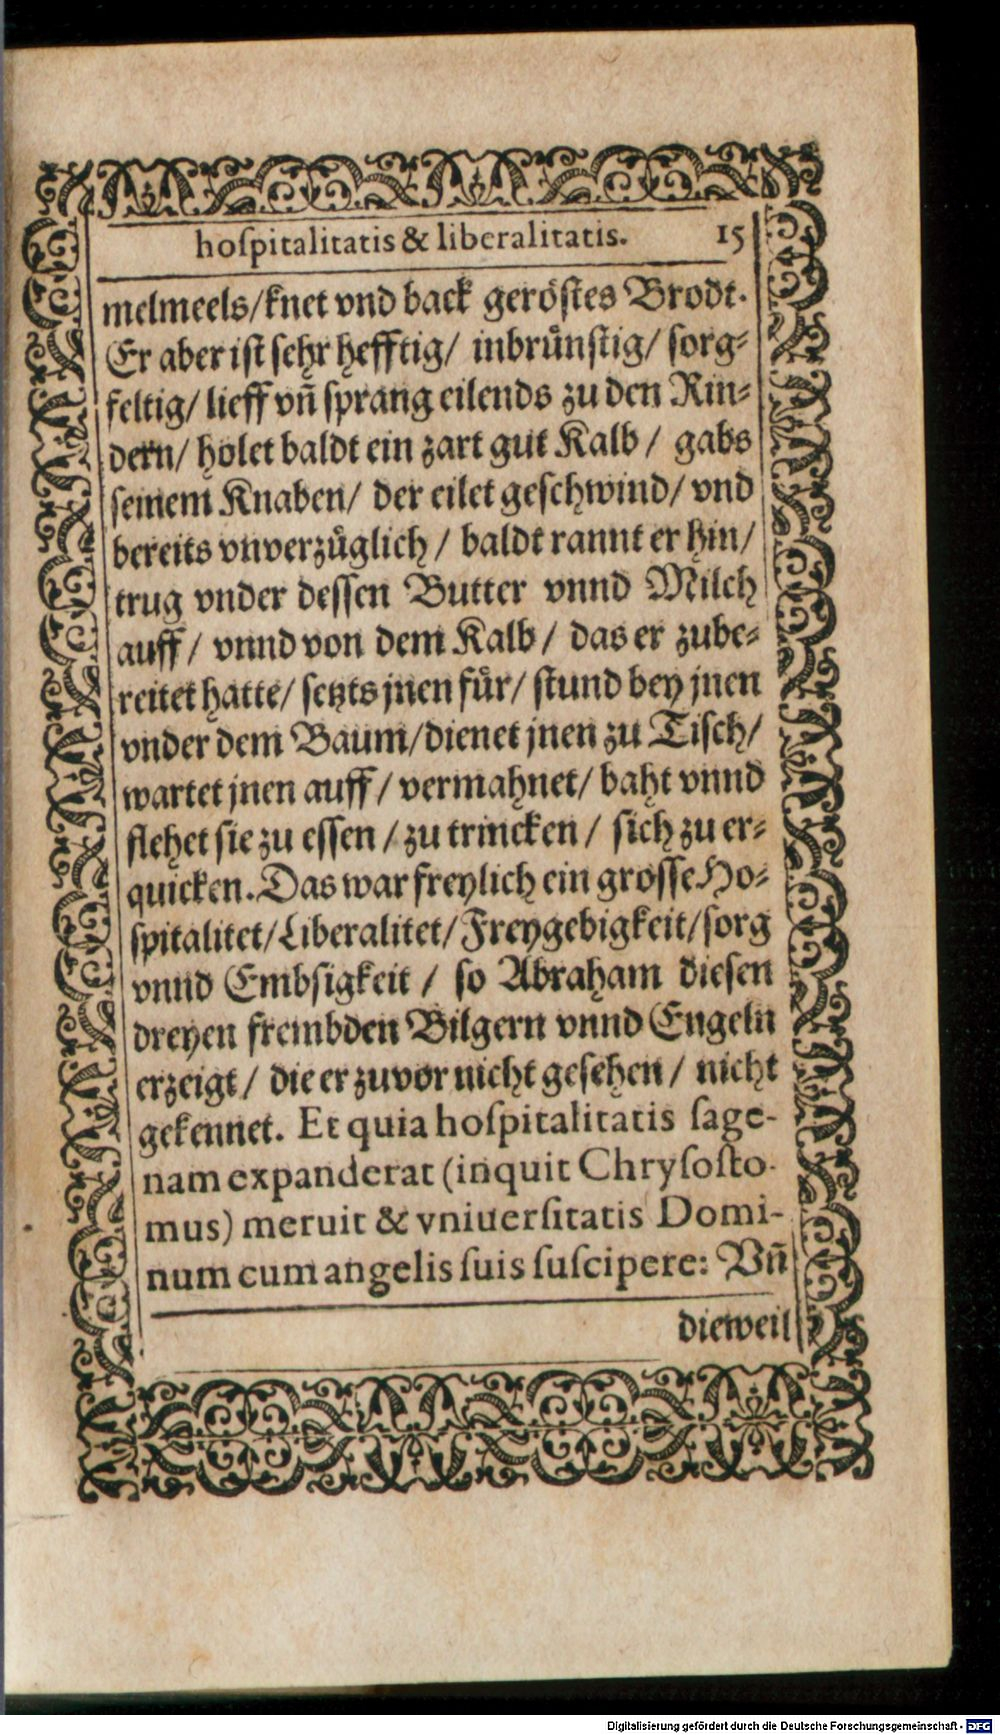 hoſpitalitatis & liberalitatis. 15
melmeels/knet vnd back geröſtes Brodt.
Er aber iſt ſehr hefftig/ inbrünſtig/ ſorg⸗
feltig/ lieff vñ ſprang eilends zu den Rin⸗
dern/ holet baldt ein zart gut Kalb / gabs
ſeinem Knaben/ der eilet geſchwind/ vnd
bereits vnverzüglich / baldt rannt er hin/
trug vnder deſſen Butter vnnd Milch
auff / vnnd von dem Kalb / das er zube⸗
reitet hatte/ ſetzts jnen für/ ſtund bey jnen
vnder dem Baum/dienet jnen zu Tiſch/
wartet jnen auff / vermahnet/ baht vnnd
flehet ſie zu eſſen / zu trincken / ſich zu er⸗
quicken. Das war freylich ein groſſe Ho⸗
ſpitalitet/Liberalitet/Freygebigkeit/ſorg
vnnd Embſigkeit / ſo Abraham dieſen
dreyen frembden Bilgern vnnd Engeln
erzeigt / die er zuvor nicht geſehen / nicht
gekennet. Et quia hoſpitalitatis ſage-
nam expanderat (inquit Chryſoſto-
mus) meruit & vniuerſitatis Domi-
num cum angelis ſuis ſuſcipere: Vñ
dieweil
Digitalisierung gefördert durch die Deutsche Forschungsgemeinschaft - DFG